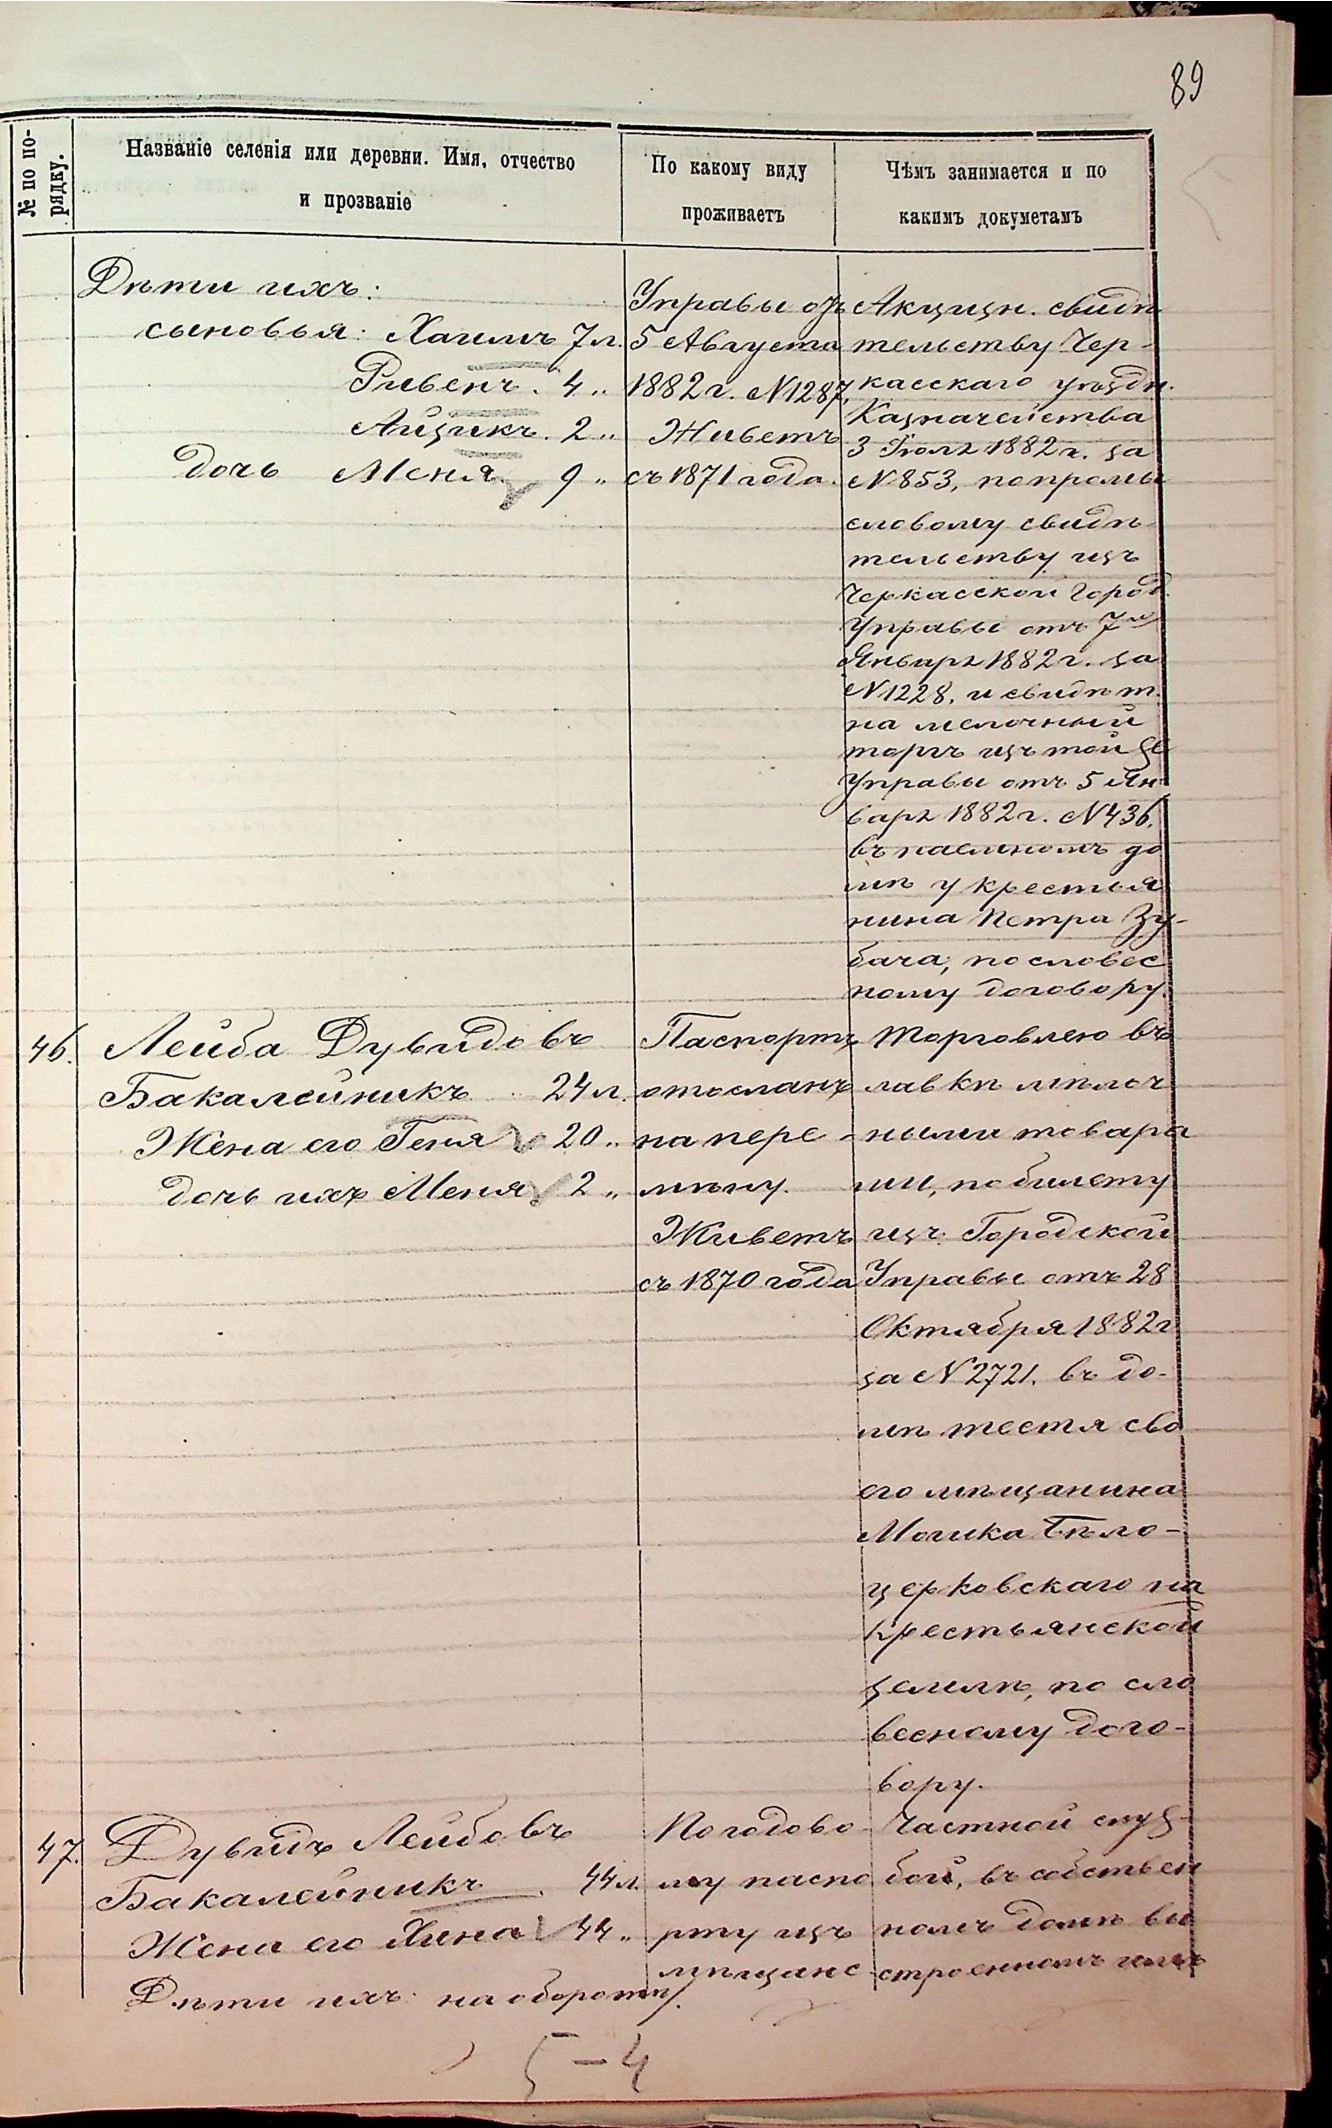 89
№ по по-
рядку.
Названіе селенія или деревни. Имя, отчество
и прозваніе
По какому виду
проживаетъ
Чѣмъ занимается и по
какимъ докуметамъ
Дѣти ихъ:
сыновья: Хаимъ 7 л.
Рувенъ. 4 "
Айзикъ. 2 "
дочь Меня 9 "
Управы отъ
5 Августа
1882 г. N 1287.
Живетъ
съ 1871 года.
Акцизн. свидѣ
тельству Чер-
касскаго уѣздн.
Казначейства
3 Іюля 1882 г. за
N 853, по промы
словому свидѣ
тельству изъ
Черкасской Город.
Управы отъ 7го
Января 1882 г. за
N 1228, и свидѣт.
на мелочный
торгъ изъ той же
Управы отъ 5 Ян
варя 1882 г. N 436.
въ наемномъ до
мѣ у крестья
нина Петра Зу-
бача, по словес
ному договору.
46. Лейба Дувидовъ
Бакалейникъ 24 л.
Жена его Геня 20 "
дочь ихъ Меня 2 "
Паспортъ
отосланъ
на пере-
мѣну.
Живетъ
съ 1870 года
Торговлею въ
лавкѣ мѣлоч
ными товара
ми, по билету
изъ Городской
Управы отъ 28
Октября 1882 г
за N 2721. въ до-
мѣ тестя сво
его мѣщанина
Мошка Бѣло-
церковскаго на
крестьянской
землѣ, по сло
весному дого-
вору.
47. Дувидъ Лейбовъ
Бакалейникъ 44 л.
Жена его Хина 44 "
Дѣти ихъ на оборотѣ/.
По годово
му паспо
рту изъ
мѣщанс
Частной служ-
бой, въ собствен
номъ домѣ вы
строенномъ имъ
5-4